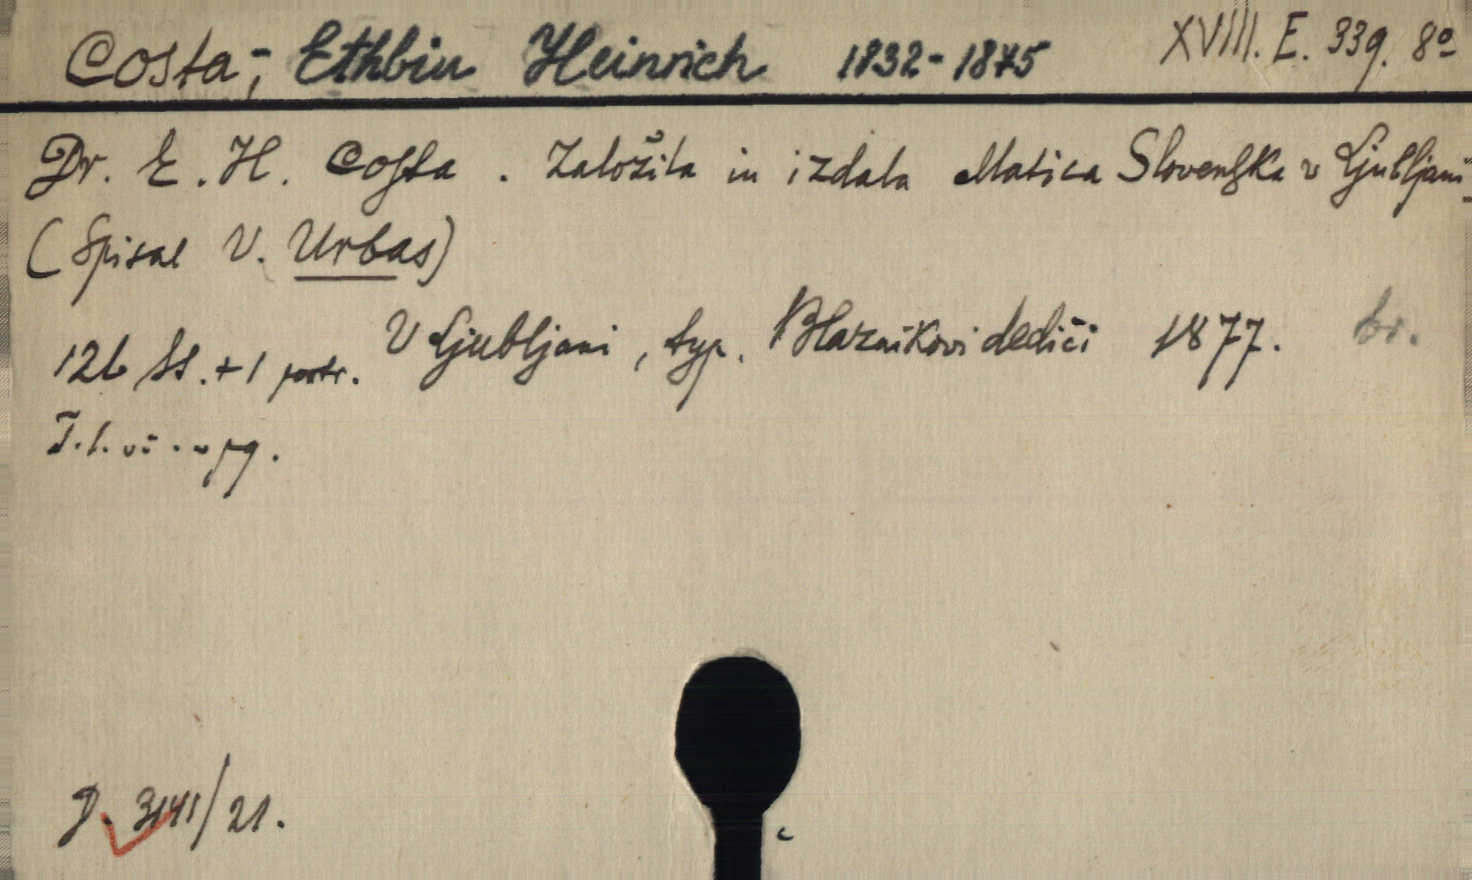 Costa, Ethbin Heinrich 1832-1875 XVIII. E. 339. 8º
Dr. E. H. Costa. Založila in izdala Matica Slovenska v Ljubljani.
(Spisal V. Urbas)
V Ljubljani, typ. Blaznikovi dediči 1877. br.
126 ss. + 1 portr.
D. 3141/21.